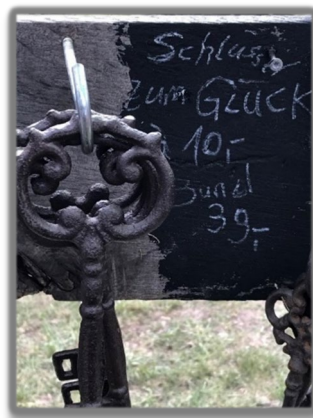 Schlüss
zum Glück
10,-
Bund
39,-